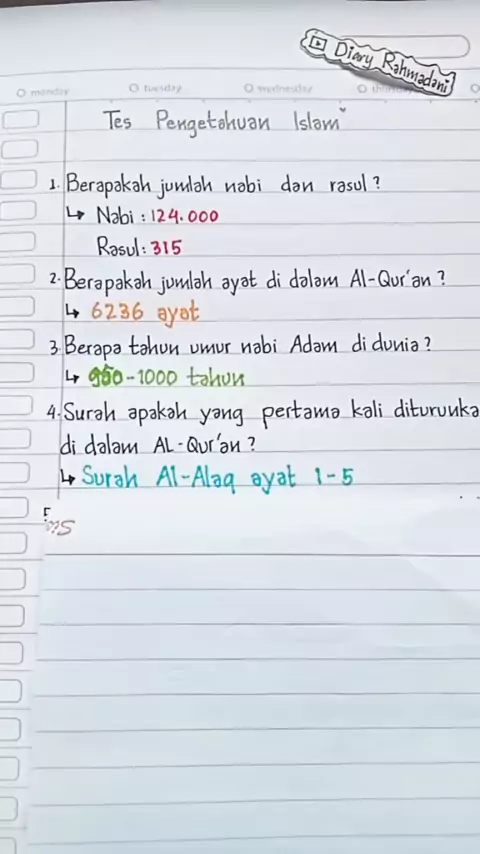 Diary Rahmadani
monday tuesday wednesday
Tes Pengetahuan Islam
1. Berapakah jumlah nabi dan rasul?
↳ Nabi : 124.000
Rasul: 315
2. Berapakah jumlah ayat di dalam Al-Qur'an?
↳ 6236 ayat
3. Berapa tahun umur nabi Adam di dunia?
↳ 950-1000 tahun
4. Surah apakah yang pertama kali diturunka
di dalam AL-Qur'an?
↳ Surah Al-Alaq ayat 1-5